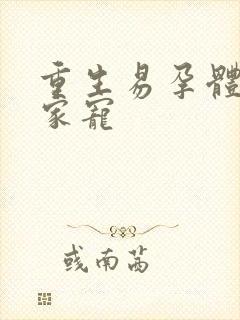 重生易孕體
家寵
彧南茜